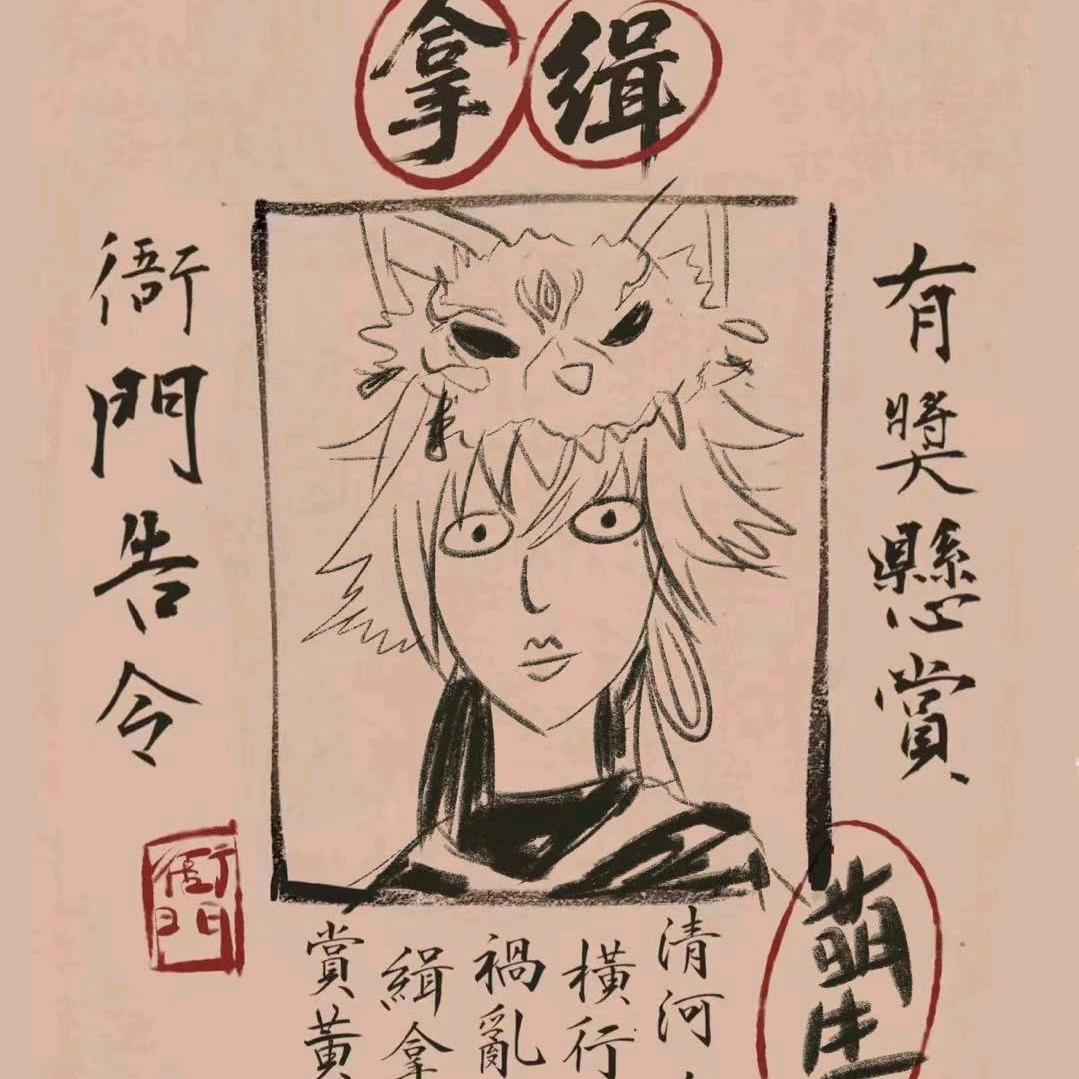 緝拿
有獎懸賞
萌生
清河
橫行
禍亂
緝拿
賞黃
衙門告令
衙門